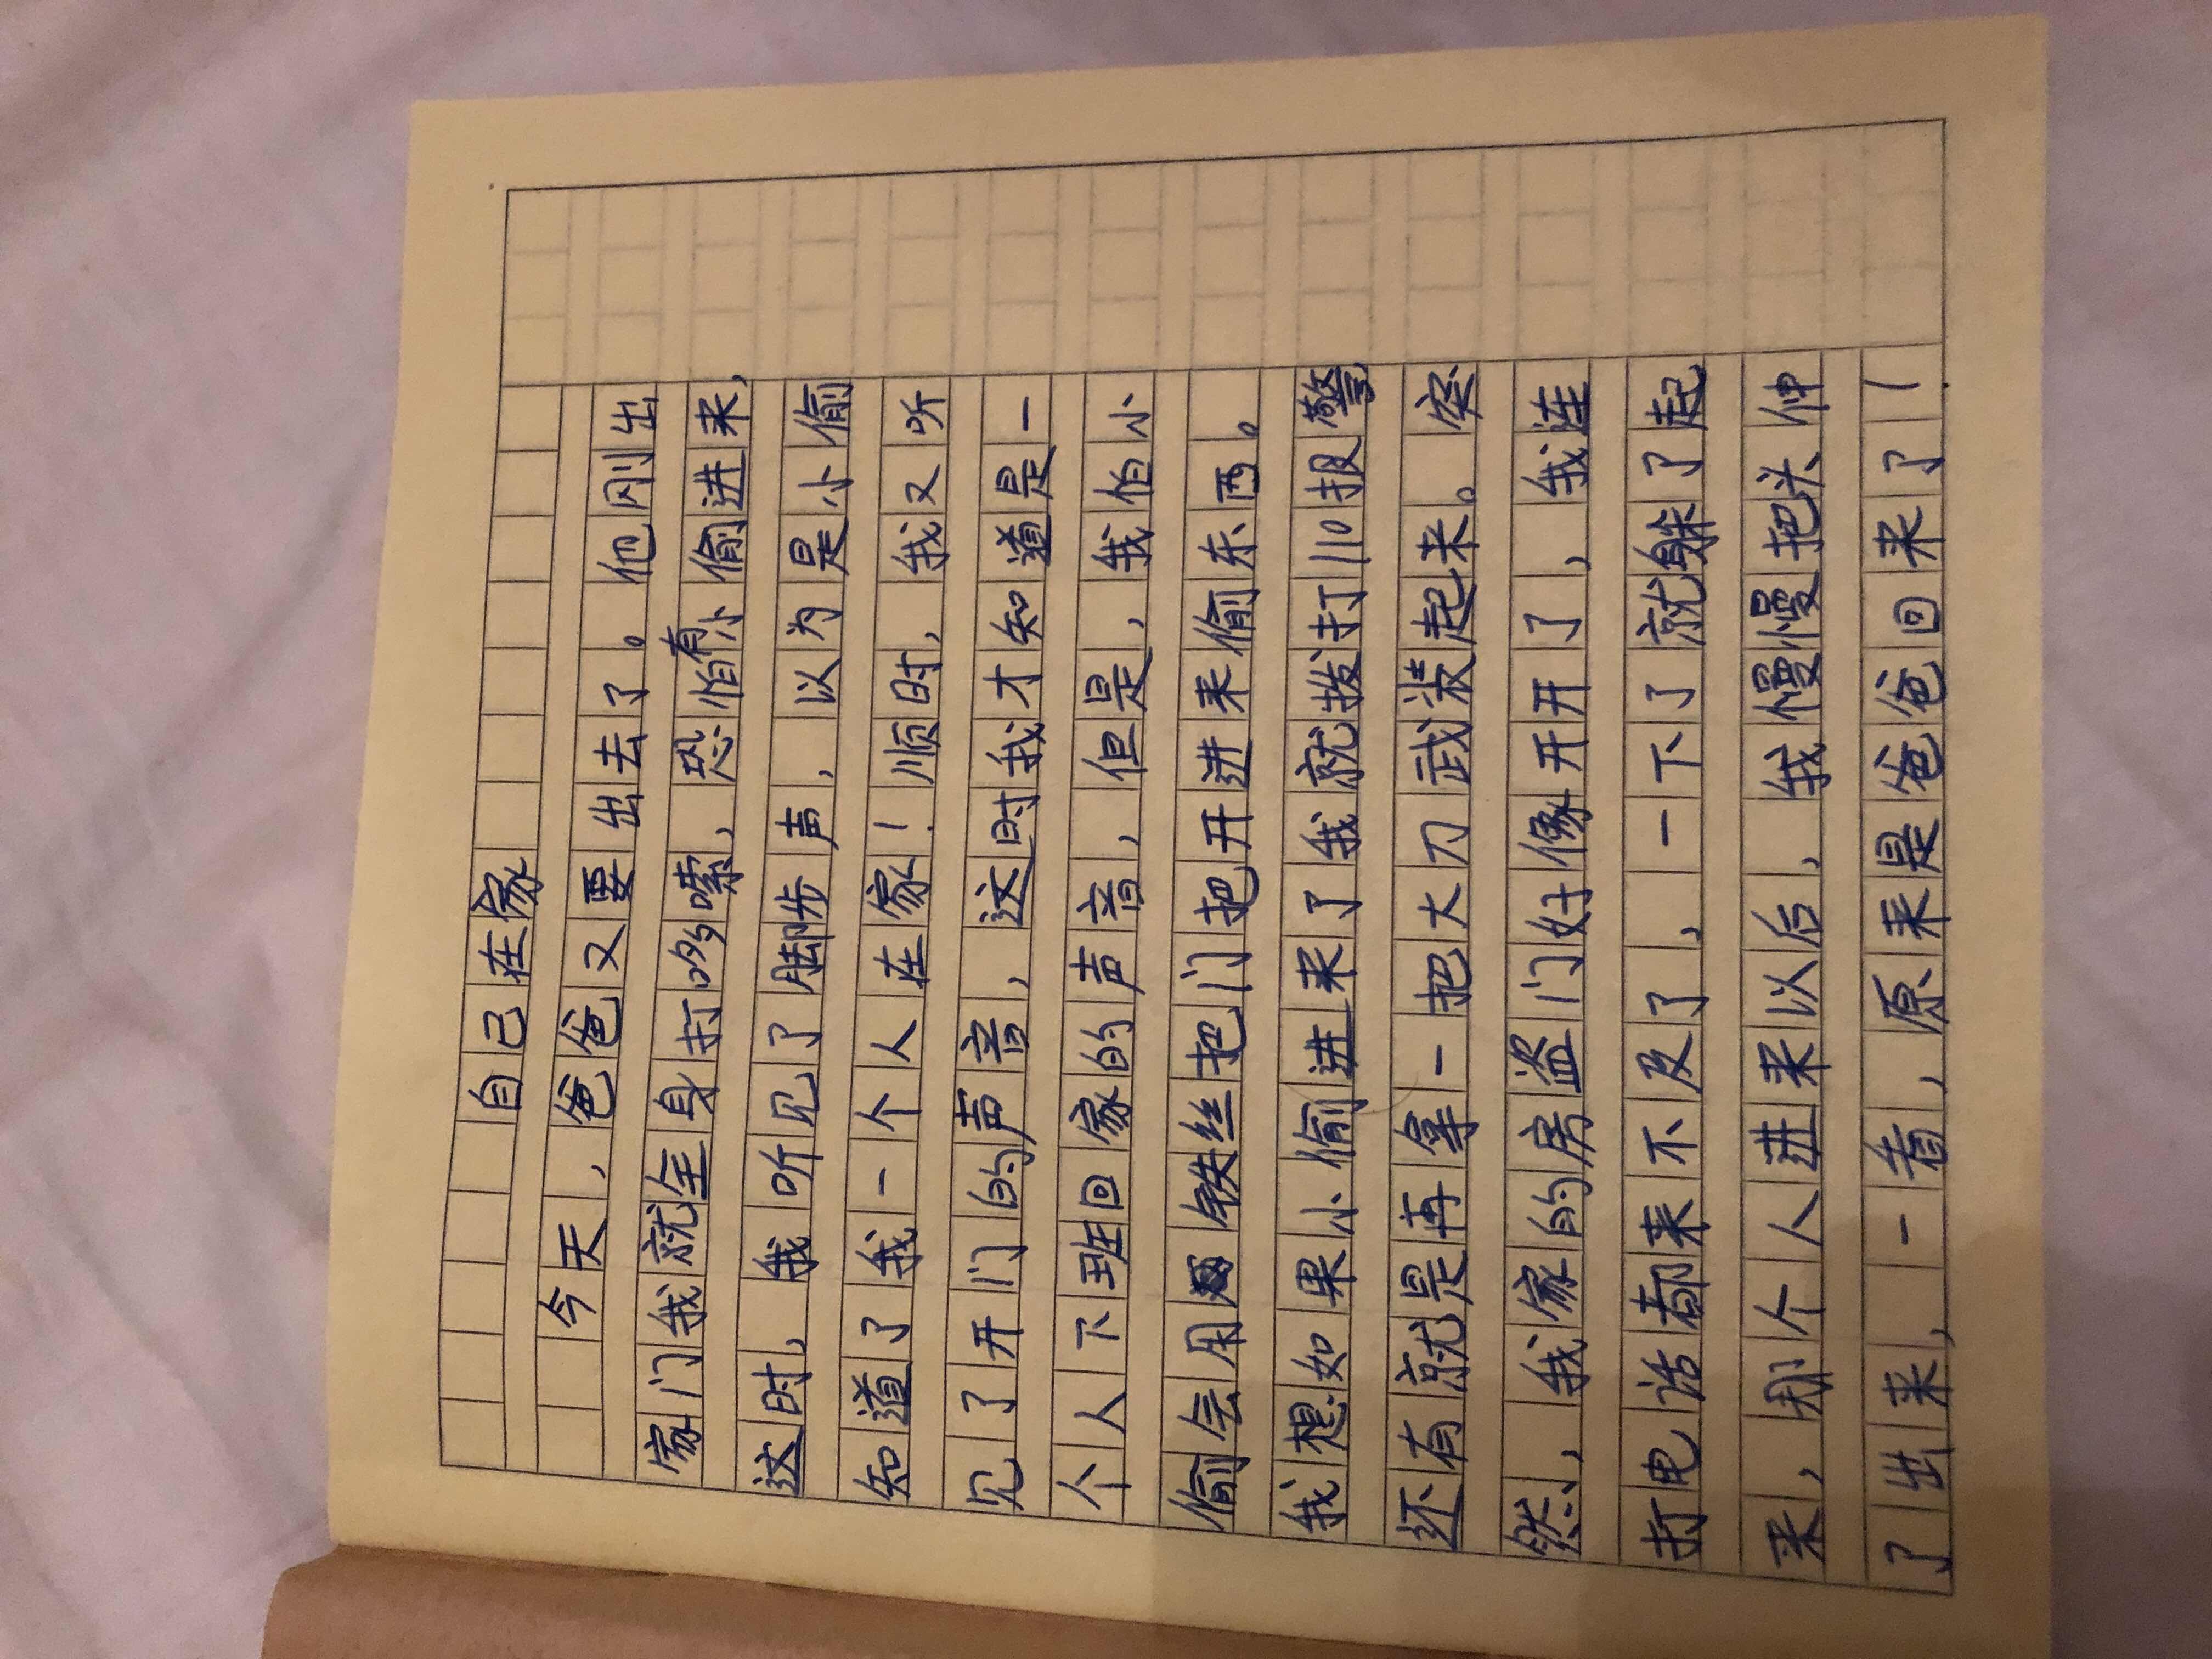 自己在家
今天，爸爸又要出去了。他刚出
家门我就全身打哆嗦，恐怕有小偷进来，
这时，我听见了脚步声，以为是小偷
知道了我一个人在家！顺时，我又听
见了开门的声音，这时我才知道是一
个人下班回家的声音，但是，我怕小
偷会用铁丝把门把开进来偷东西。
我想如果小偷进来了我就拨打110报警
还有就是再拿一把大刀武装起来。突
然，我家的房盗门好像开开了，我连
打电话都来不及了，一下了就躲了起
来，那个人进来以后，我慢慢把头伸
了出来，一看，原来是爸爸回来了！